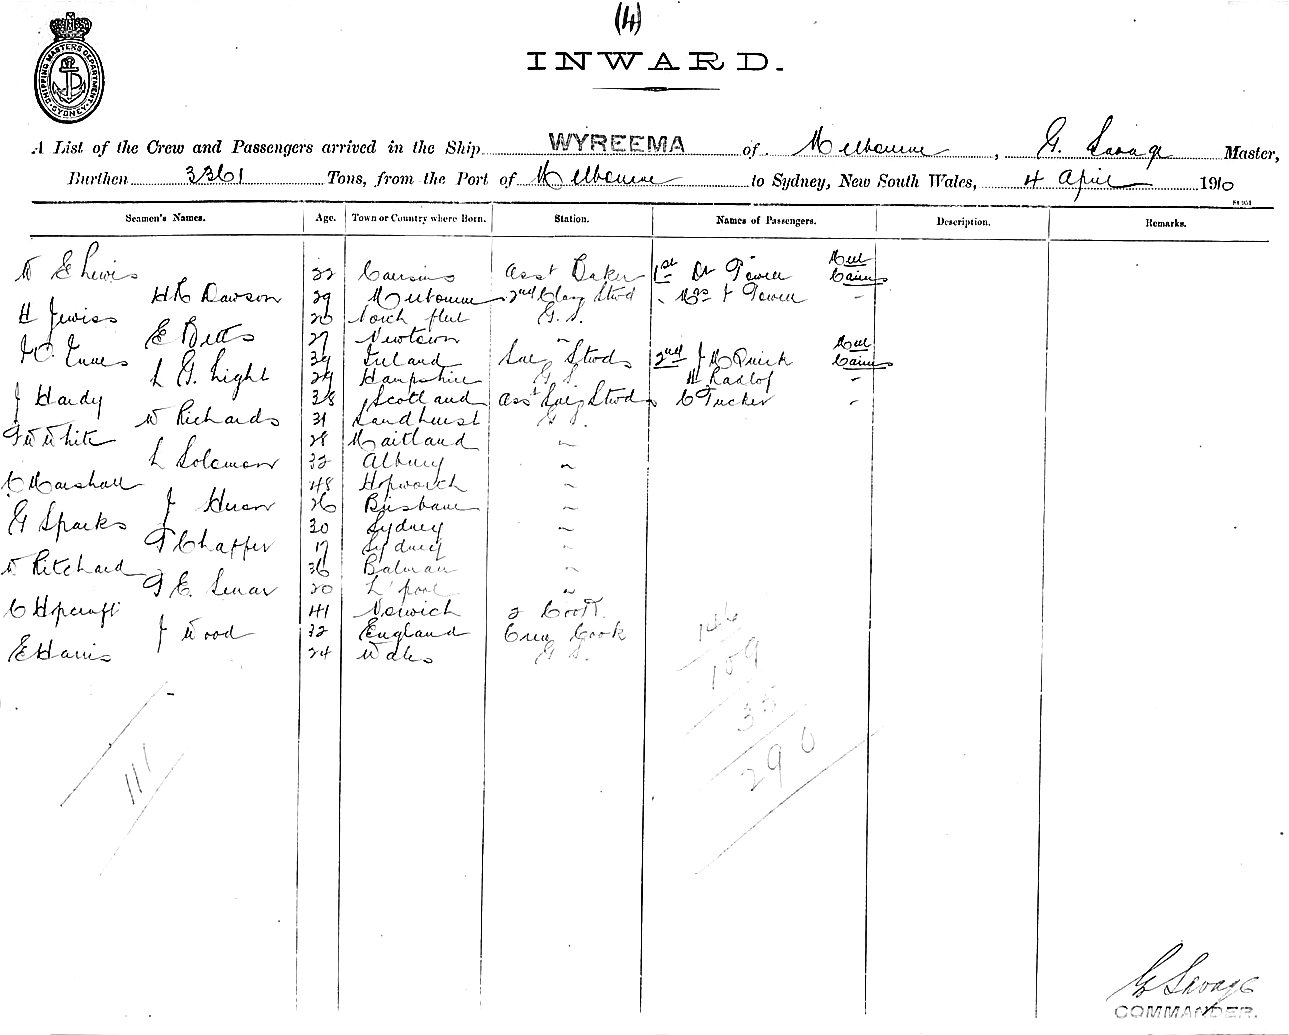 (4)
INWARD.
SHIPPING MASTERS DEPARTMENT SYDNEY
A List of the Crew and Passengers arrived in the Ship WYREEMA of Melbourne, G. Savage Master,
Burthen 3361 Tons, from the Port of Melbourne to Sydney, New South Wales, 4 April 1910
Seamen's Names. Age. Town or Country where Born. Station. Names of Passengers. Description. Remarks.
W E Lewis 22 Asst Baker 1st Dr Power Mel Cairns
H C Dawson 29 Melbourne 2nd Class Stwd Mrs Power "
H Jewiss 20 North fleet G. S.
E Betts 27 Newtown "
39 Ireland Sal Stwds 2nd J McQuick Mel Cairns
L G. Light 29 Hampshire G S. W Radlof "
J Hardy 38 Scotland Asst Sal Stwds C Tucker "
W Richards 31 Sandhurst G S.
White 28 Maitland "
L Soloman 32 Albury "
C Marshall 48 "
J 26 Brisbane "
G Sparks 30 Sydney "
T Chaffer 17 Sydney "
W Ritchard 36 Balman "
20 L'pool "
C Hopcraft 41 Norwich 2 Cook
J Wood 32 England Crew Cook
E Harris 24 Wales G S.
146
109
35
290
111
G Savage
COMMANDER.